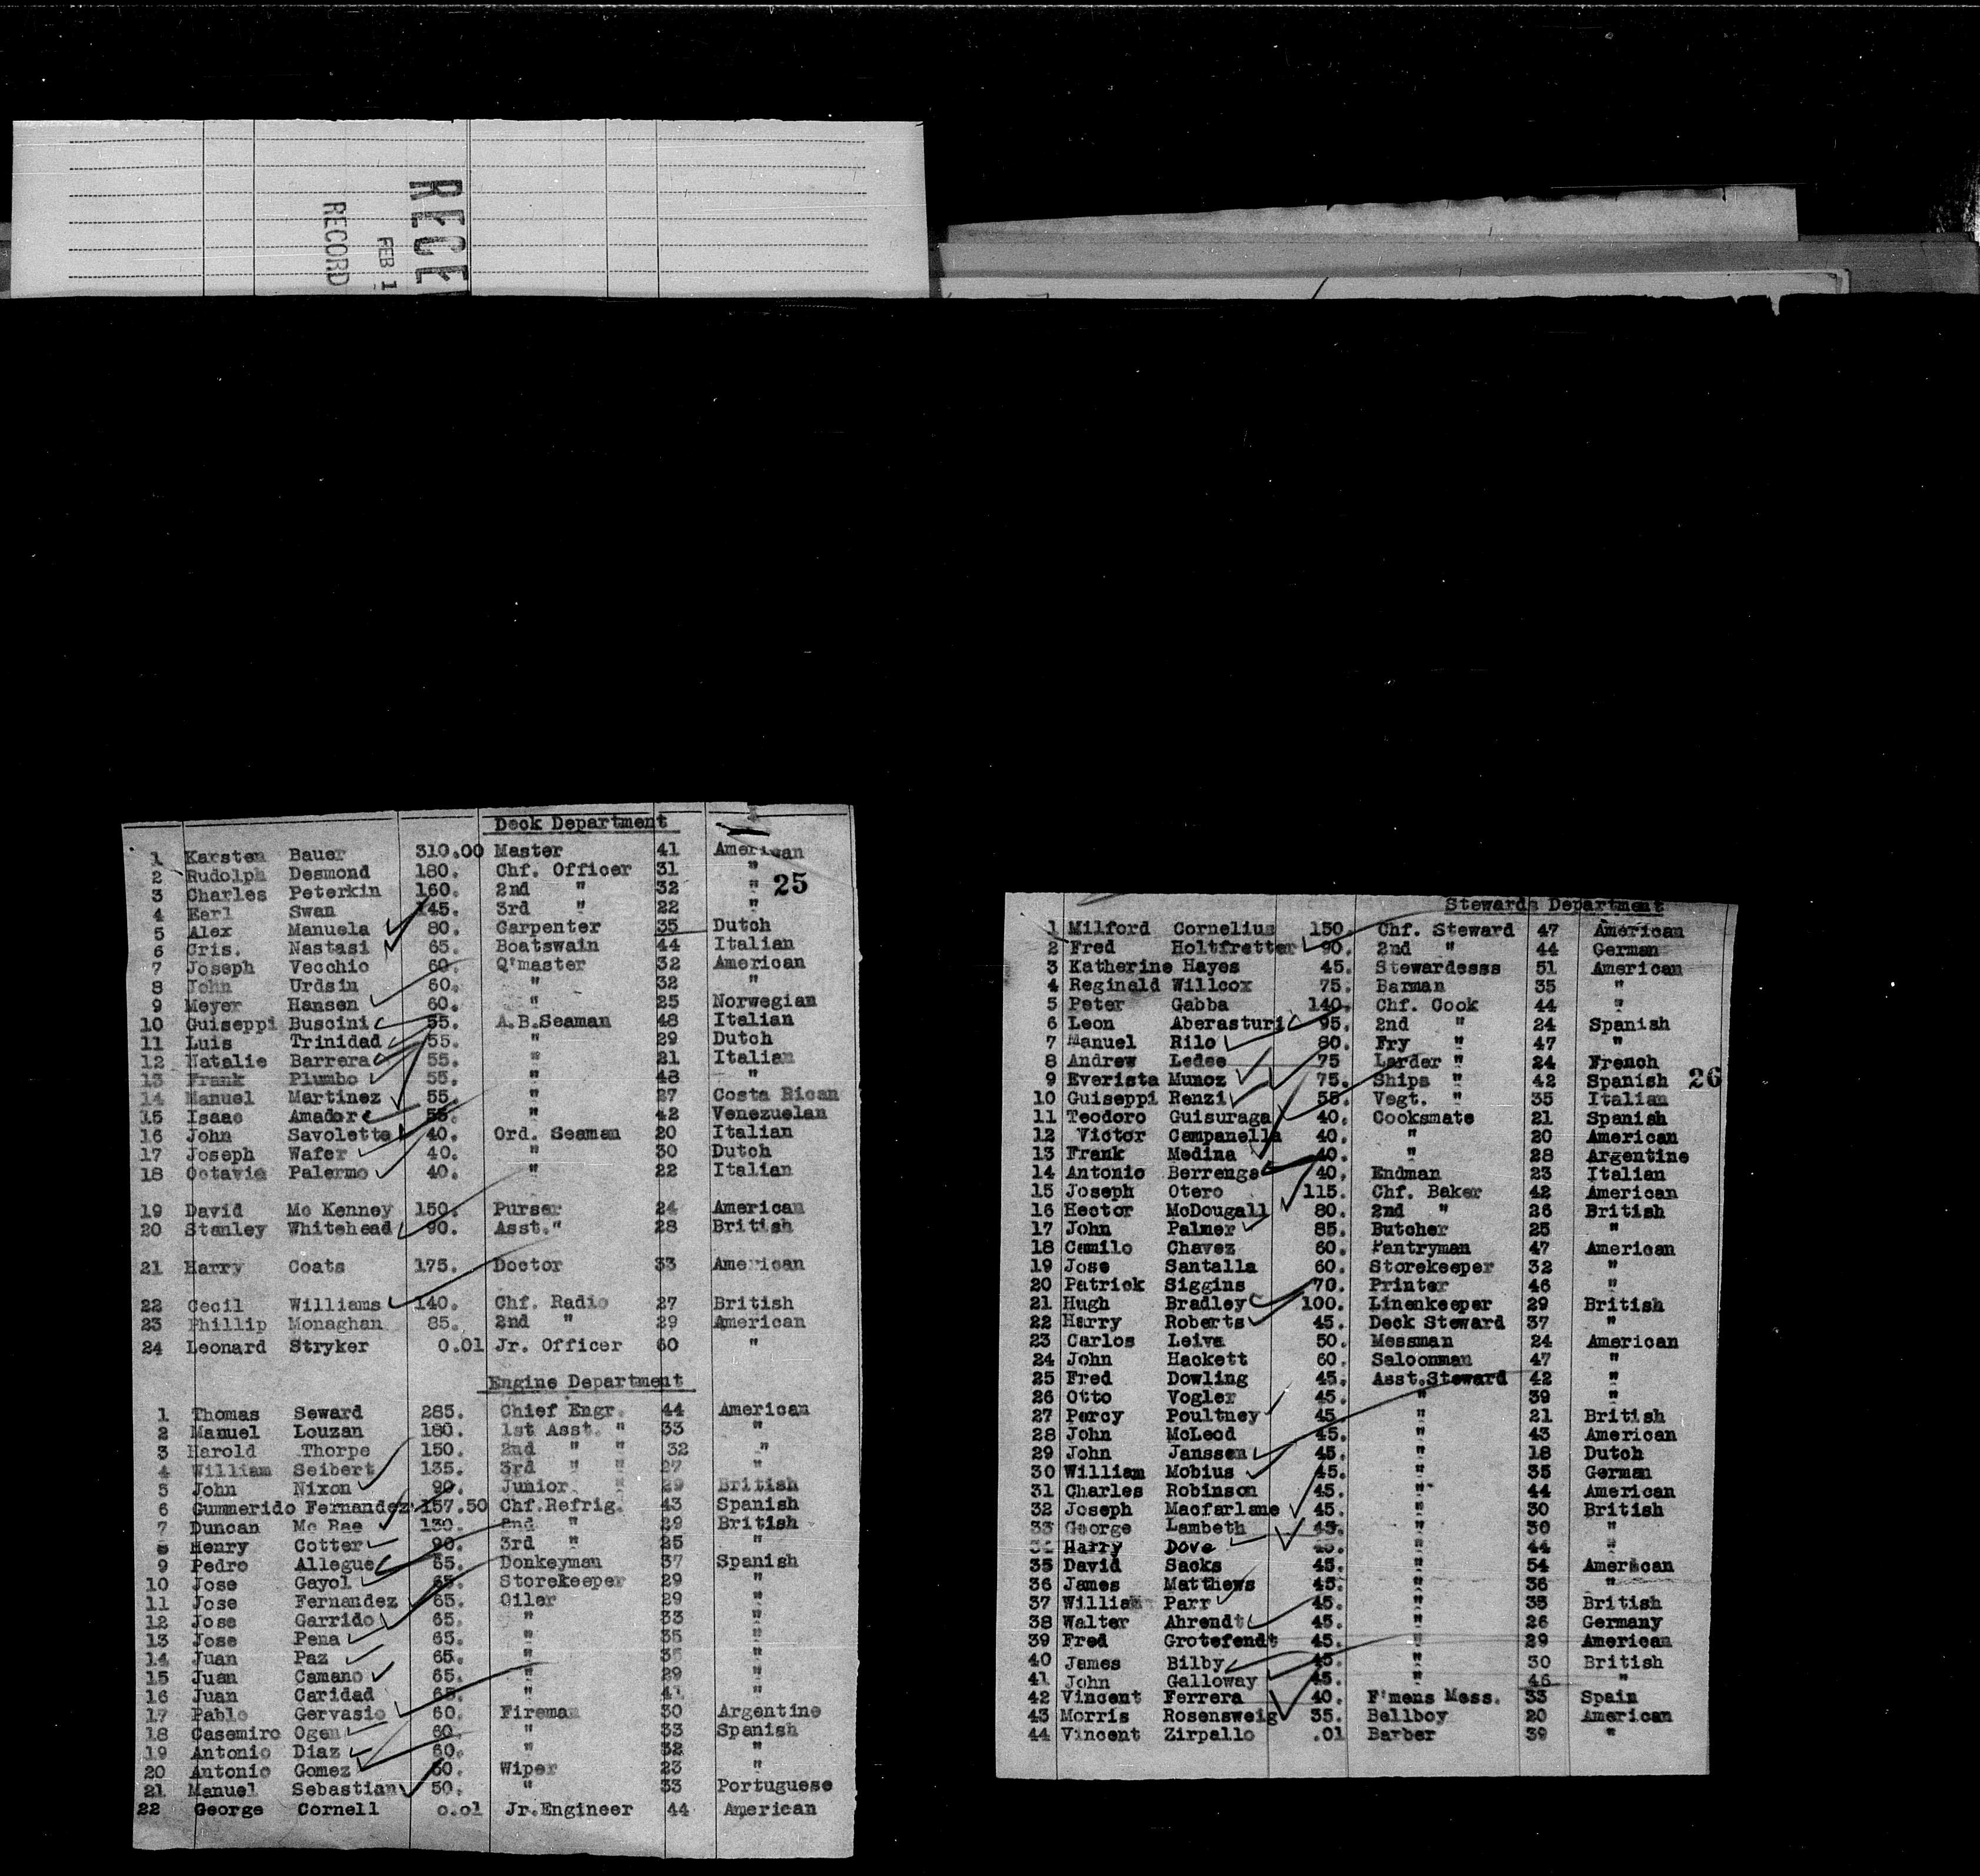 RECE
FEB 1
RECORD
Deck Department
1 Karsten Bauer 310.00 Master 41 American
2 Rudolph Desmond 180. Chf. Officer 31 "
3 Charles Peterkin 160. 2nd " 32 "
25
4 Earl Swan 145. 3rd " 22 "
5 Alex Manuela 80. Carpenter 35 Dutch
6 Cris. Nastasi 65. Boatswain 44 Italian
7 Joseph Vecchio 60. Q'master 32 American
8 John Urdsin 60. " 32 "
9 Meyer Hansen 60. " 25 Norwegian
10 Guiseppi Buscini 55. A.B.Seaman 48 Italian
11 Luis Trinidad 55. " 29 Dutch
12 Natalie Barrera 55. " 21 Italian
13 Frank Plumbo 55. " 48 "
14 Manuel Martinez 55. " 27 Costa Rican
15 Isaac Amador 55. " 42 Venezuelan
16 John Savolette 40. Ord. Seaman 20 Italian
17 Joseph Wafer 40. " 30 Dutch
18 Octavie Palermo 40. " 22 Italian
19 David Mc Kenney 150. Purser 24 American
20 Stanley Whitehead 90. Asst." 28 British
21 Harry Coats 175. Doctor 33 American
22 Cecil Williams 140. Chf. Radio 27 British
23 Phillip Monaghan 85. 2nd " 29 American
24 Leonard Stryker 0.01 Jr. Officer 60 "
Engine Department
1 Thomas Seward 285. Chief Engr. 44 American
2 Manuel Louzan 180. 1st Asst. " 33 "
3 Harold Thorpe 150. 2nd " " 32 "
4 William Seibert 135. 3rd " " 27 "
5 John Nixon 90. Junior " 29 British
6 Gummerido Fernandez 157.50 Chf.Refrig. 43 Spanish
7 Duncan Mc Rae 130. 2nd " 29 British
8 Henry Cotter 90. 3rd " 25 "
9 Pedro Allegue 85. Donkeyman 37 Spanish
10 Jose Gayol 65. Storekeeper 29 "
11 Jose Fernandez 65. Oiler 29 "
12 Jose Garrido 65. " 33 "
13 Jose Pena 65. " 35 "
14 Juan Paz 65. " 35 "
15 Juan Camano 65. " 29 "
16 Juan Caridad 65. " 41 "
17 Pablo Gervasio 60. Fireman 30 Argentine
18 Casemiro Ogen 60. " 33 Spanish
19 Antonio Diaz 60. " 32 "
20 Antonio Gomez 50. Wiper 23 "
21 Manuel Sebastian 50. " 33 Portuguese
22 George Cornell 0.01 Jr.Engineer 44 American
Stewards Department
1 Milford Cornelius 150. Chf. Steward 47 American
2 Fred Holtfretter 90. 2nd " 44 German
3 Katherine Hayes 45. Stewardesss 51 American
4 Reginald Willcox 75. Barman 35 "
5 Peter Gabba 140. Chf. Cook 44 "
6 Leon Aberasturi 95. 2nd " 24 Spanish
7 Manuel Rilo 80. Fry " 47 "
8 Andrew Ledee 75 Larder " 24 French
9 Everista Munoz 75. Ships " 42 Spanish
26
10 Guiseppi Renzi 55. Vegt. " 35 Italian
11 Teodoro Guisuraga 40. Cooksmate 21 Spanish
12 Victor Campanella 40. " 20 American
13 Frank Medina 40. " 28 Argentine
14 Antonio Berrenge 40. Endman 23 Italian
15 Joseph Otero 115. Chf. Baker 42 American
16 Hector McDougall 80. 2nd " 26 British
17 John Palmer 85. Butcher 25 "
18 Camilo Chavez 60. Pantryman 47 American
19 Jose Santalla 60. Storekeeper 32 "
20 Patrick Siggins 70. Printer 46 "
21 Hugh Bradley 100. Linenkeeper 29 British
22 Harry Roberts 45. Deck Steward 37 "
23 Carlos Leiva 50. Messman 24 American
24 John Hackett 60. Saloonman 47 "
25 Fred Dowling 45. Asst.Steward 42 "
26 Otto Vogler 45. " 39 "
27 Percy Poultney 45. " 21 British
28 John McLeod 45. " 43 American
29 John Janssen 45. " 18 Dutch
30 William Mobius 45. " 35 German
31 Charles Robinson 45. " 44 American
32 Joseph Macfarlane 45. " 30 British
33 George Lambeth 45. " 30 "
34 Harry Dove 45. " 44 "
35 David Sacks 45. " 54 American
36 James Matthews 45. " 36 "
37 William Parr 45. " 35 British
38 Walter Ahrendt 45. " 26 Germany
39 Fred Grotefendt 45. " 29 American
40 James Bilby 45. " 30 British
41 John Galloway 45. " 46 "
42 Vincent Ferrera 40. F'mens Mess. 33 Spain
43 Morris Rosensweig 35. Bellboy 20 American
44 Vincent Zirpallo .01 Barber 39 "